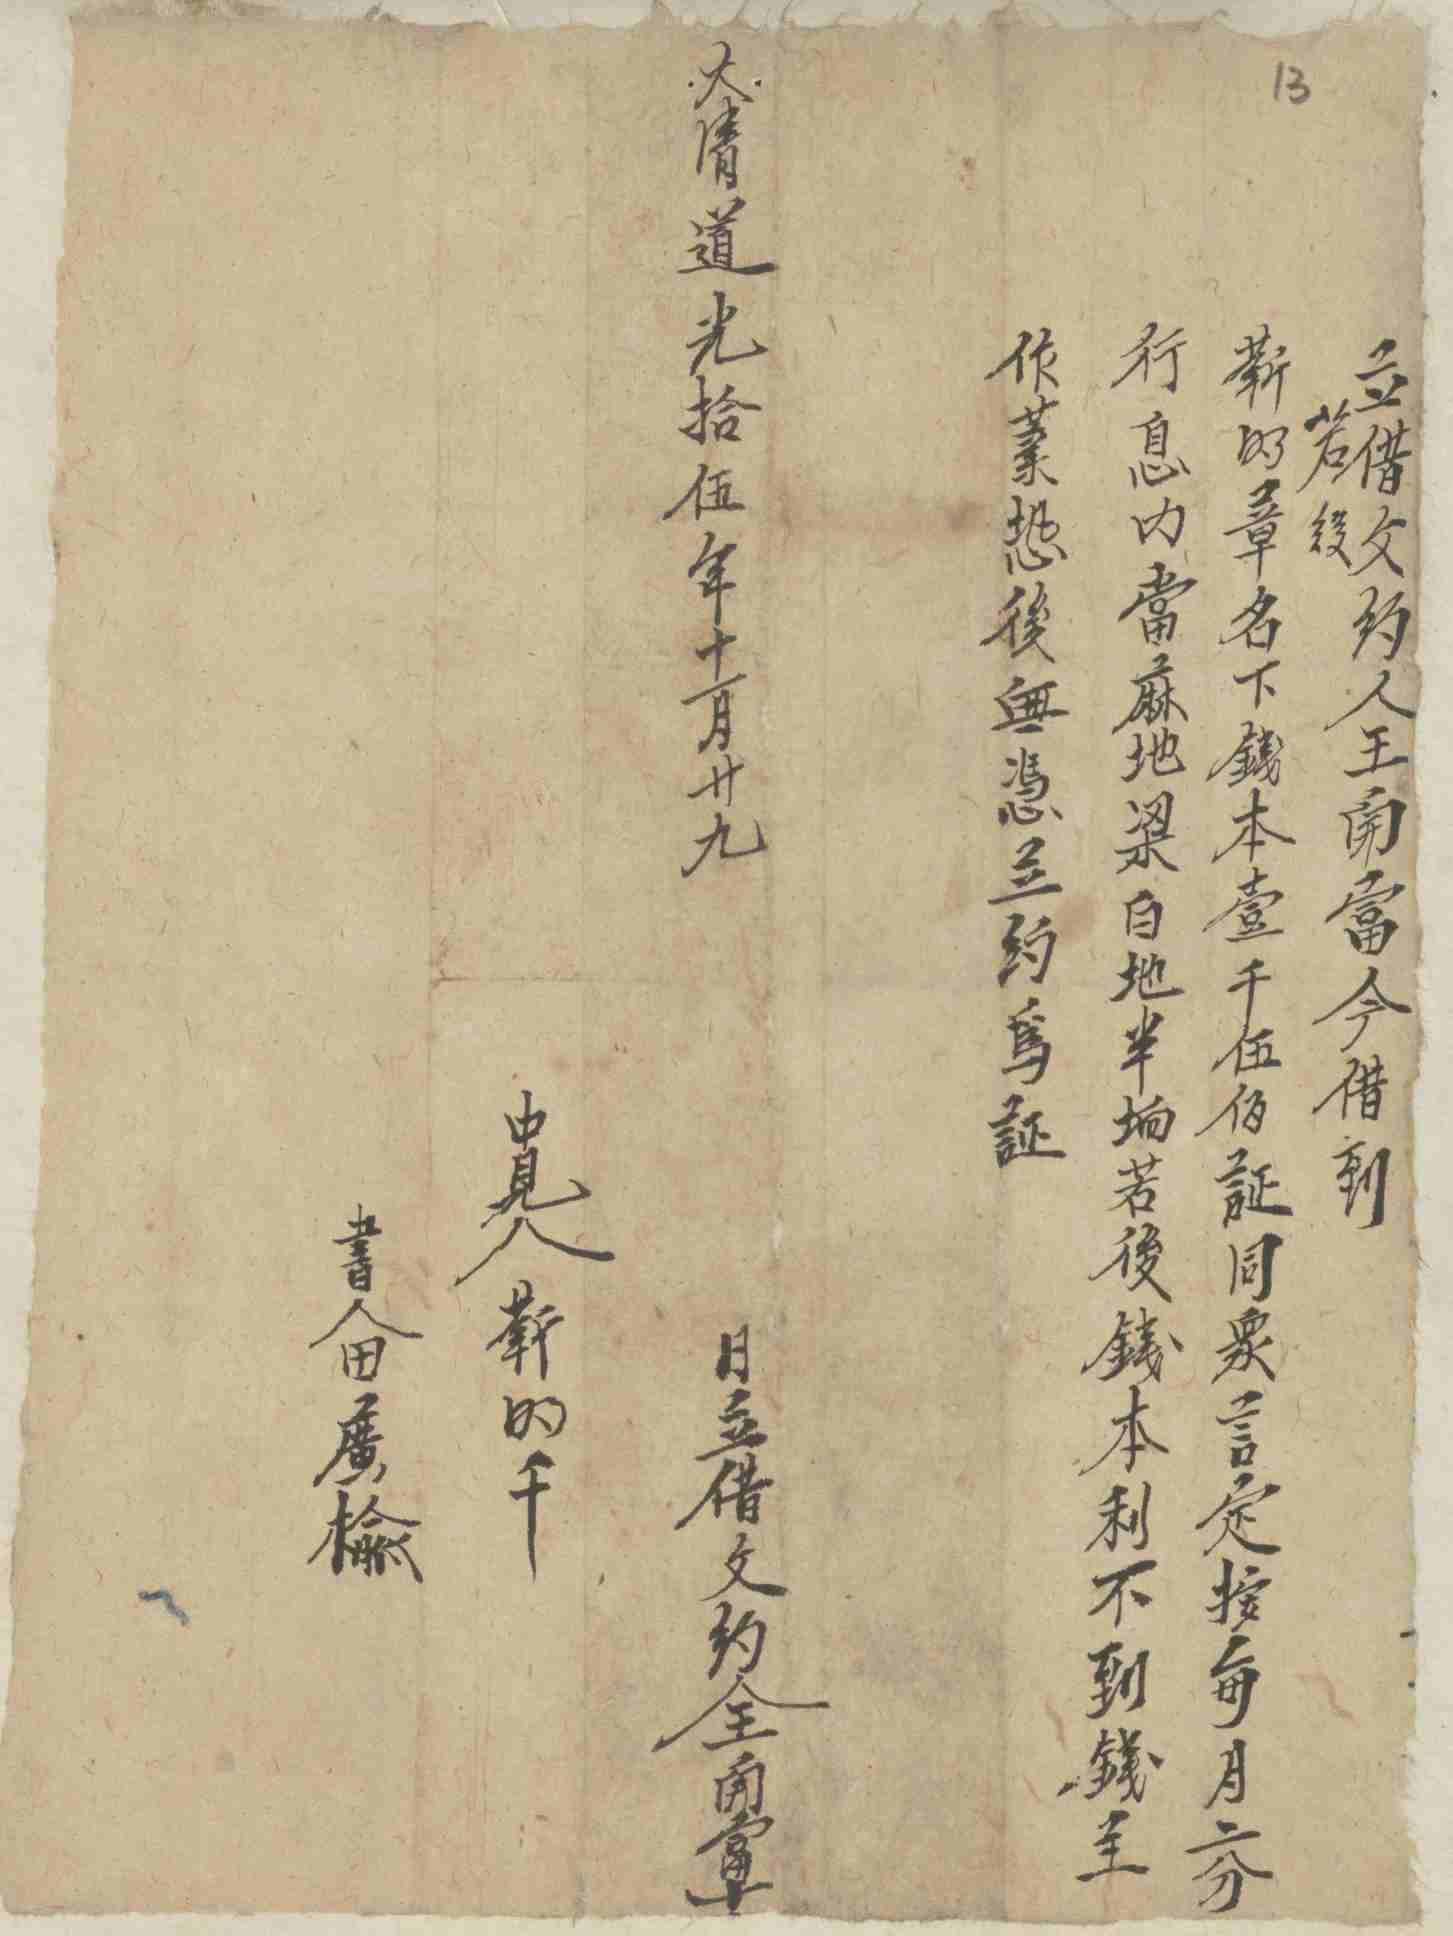 13
立借文約人王開當今借到
若後
靳的章名下錢本壹千伍佰証同眾言定按每月二分
行息内當蔴地梁白地半垧若後錢本利不到錢主
作業恐後無憑立約爲証
大清道光拾伍年十一月廿九
日立借文約人王開當十
中見人靳的千
書人田廣檢